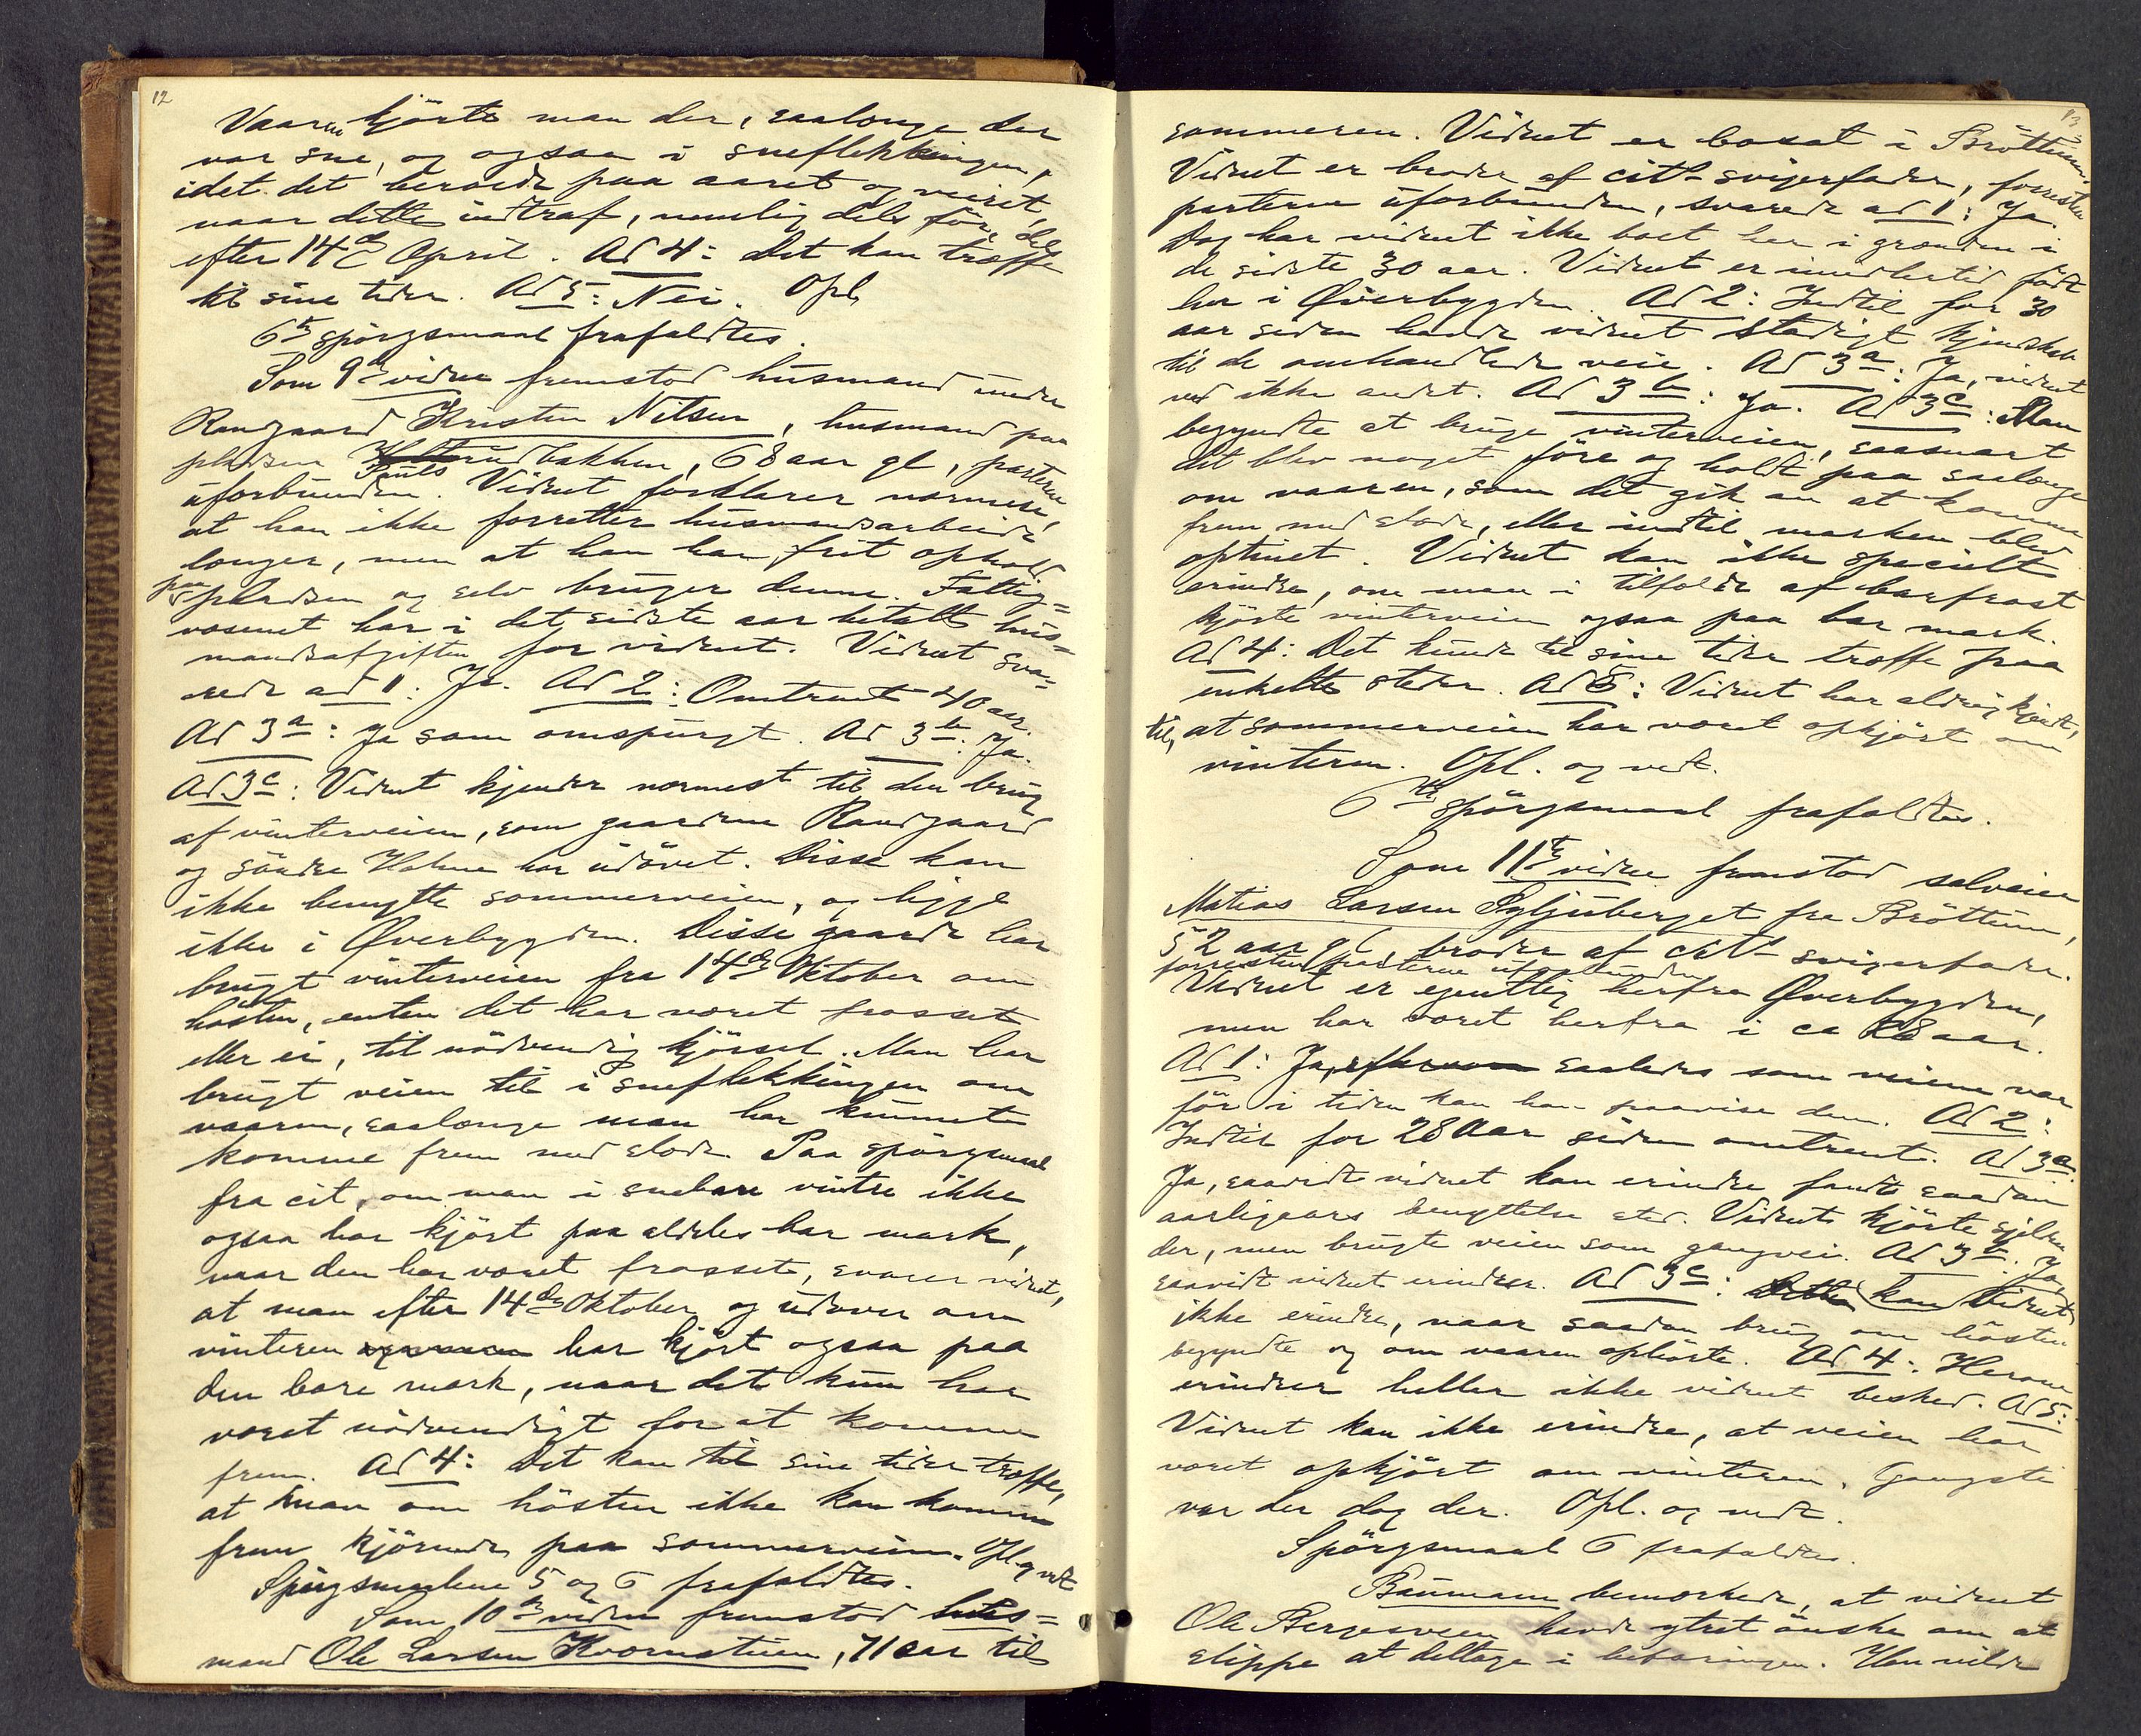 12
Vaaren kjörte man der, saalænge der
var sne, og ogsaa i sneflekkingen,
idet det beroede paa aaret og veiret,
naar dette indtraf, nemlig dels för, dels
efter 14de April. Ad 4: Det kan træffe
til sine tider. Ad 5: Nei. Opl.
6te spörgsmaal frafaldtes.
Som 9de vidne fremstod husmand under
Randgaard Kristen Nilsen, husmand paa
pladsen Pauls bakken, 68 aar gl, parterne
uforbunden. Vidnet forklarer nærmere,
at han ikke forretter husmandsarbeide
længer, men at han har frit ophold
paa pladsen og selv bruger denne. Fattig=
væsenet har i det sidste aar betalt hus=
mandsafgiften for vidnet. Vidnet sva=
rede ad 1: Ja. Ad 2: Omtrent 40 aar.
Ad 3a: Ja som omspurgt. Ad 3b: Ja.
Ad 3c: Vidnet kjender nærmest til den brug
af vinterveien, som gaardene Randgaard
og söndre Holme har udövet. Disse kan
ikke benytte sommerveien, og ligge
ikke i Överbygden. Disse gaarde har
brugt vinterveien fra 14de Oktober om
hösten, enten det har været frosset
eller ei, til nödvendig kjörsel. Man har
brugt veien til i sneflekkingen om
vaaren, saalænge man har kunnet
komme frem med slæde. Paa spörgsmaal
fra cit, om man i snebare vintre ikke
ogsaa har kjört paa aldeles bar mark,
naar den har været frosset, svarer vidnet,
at man efter 14de Oktober og udover om
vinteren har kjört ogsaa paa
den bare mark, naar det kun har
været nödvendigt for at komme
frem. Ad 4: Det kan til sine tider træffe,
at man om hösten ikke kan komme
frem kjörende paa sommerveien. Opl. og vedt.
Spörgsmaalene 5 og 6 frafaldtes.
Som 10de vidne fremstod hus=
mand Ole Larsen Kvernstuen, 71 aar til
13
sommeren. Vidnet er bosat i Bröttum.
Vidnet er broder af cits svigerfader, forresten
parterne uforbunden, svarede ad 1: Ja.
Dog har vidnet ikke boet her i grænden i
de sidste 30 aar. Vidnet er imidlertid födt
her i Överbygden. Ad 2: Indtil for 30
aar siden havde vidnet stadigt kjendskab
til de omhandlede veie. Ad 3a: Ja, vidnet
ved ikke andet. Ad 3b: Ja. Ad 3c: Man
begyndte at bruge vinterveien, saasnart
det blev noget före og holdt paa saalænge
om vaaren, som det gik an at komme
frem med slæde, eller indtil marken blev
optinet. Vidnet kan ikke specielt
erindre, om man i tilfælde af barfrost
kjörte vinterveien ogsaa paa bar mark.
Ad 4: Det kunde til sine tider træffe paa
enkelte steder. Ad 5: Vidnet har aldrig kjendt
til, at sommerveien har været opkjört om
vinteren. Opl. og vedt.
6te spörgsmaal frafaldtes.
Som 11te vidne fremstod selveier
Matias Larsen Syljuberget fra Bröttum,
52 aar gl, broder af cits svigerfader.
forresten parterne uforbunden
Vidnet er egentlig herfra Överbygden,
men har været herfra i ca 28 aar.
Ad 1: Ja, eftersom saaledes som veiene var
för i tiden kan han paavise dem. Ad 2:
Indtil for 28 Aar siden omtrent. Ad 3a:
Ja, saavidt vidnet kan erindre fandt saadan
aarligaars benyttelse sted. Vidnet kjörte sjelden
der, men brugte veien som gangvei. Ad 3b. Ja,
saavidt vidnet erindrer. Ad 3c: kan vidnet
ikke erindre, naar saadan brug om hösten
begyndte og om vaaren ophörte. Ad 4: Herom
erindrer heller ikke vidnet besked. Ad 5:
Vidnet kan ikke erindre, at veien har
været opkjört om vinteren. Gangsti
var der dog der. Opl. og vedt.
Spörgsmaal 6 frafaldtes.
Baumann bemærkede, at vidnet
Ole Bergesveen havde ytret önske om at
slippe at deltage i befaringen. Han vilde